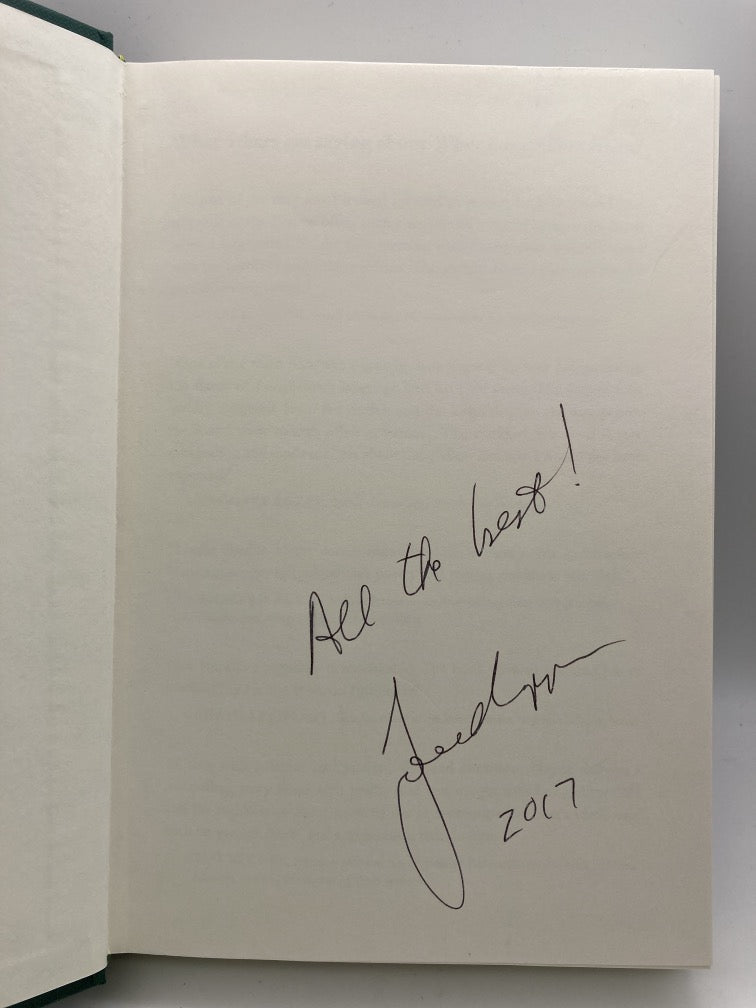 All the best!
2017